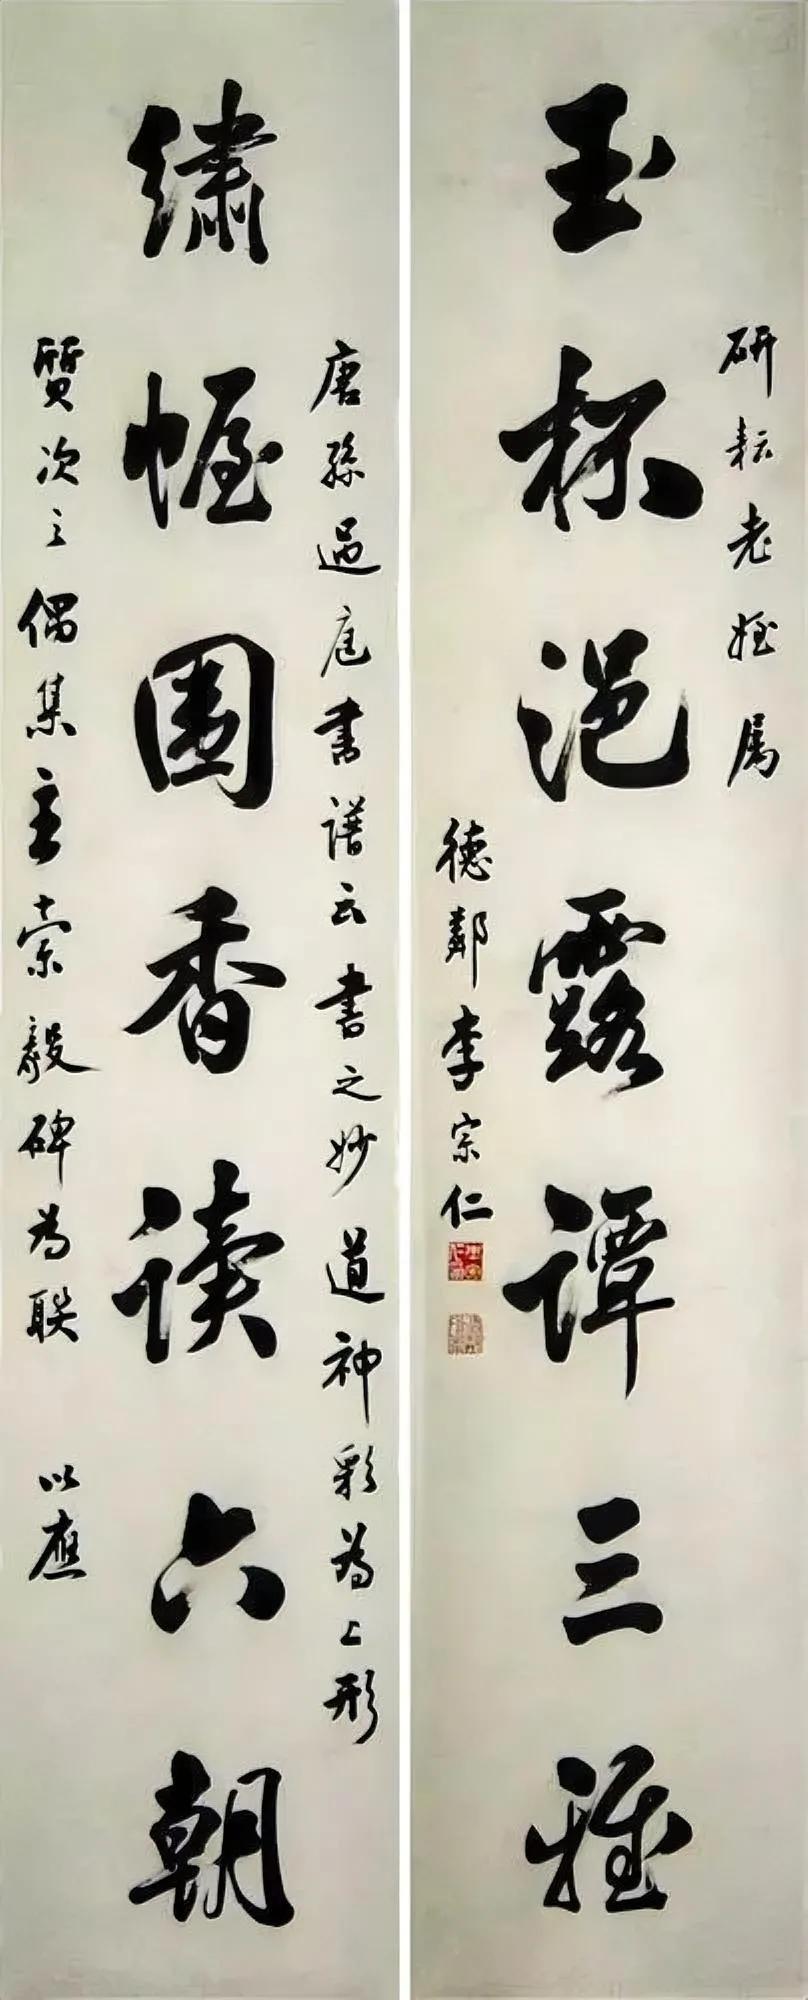 研耘老姪属
玉杯浥露譚三雅
德鄰李宗仁
唐孫過庭書譜云書之妙道神彩為上形
繡幄圍香讀六朝
質次之偶集碑為聯 以應